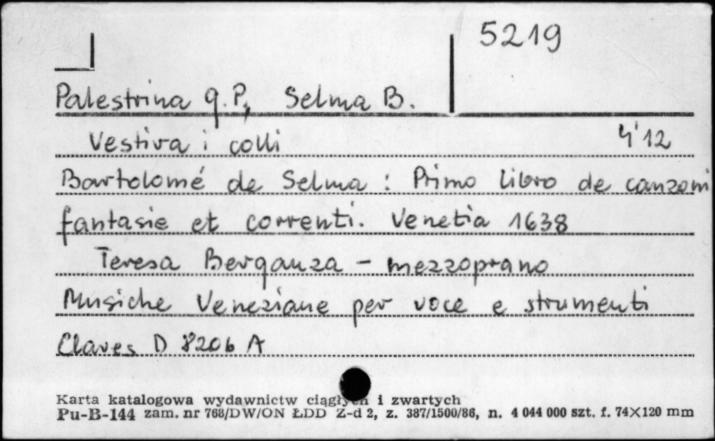 5219
Palestrina G.P., Selma B.
Vestiva i colli 4'12
Bartolomé de Selma : Primo libro de canzoni
fantasie et correnti. Venetia 1638
Teresa Berganza - mezzoprano
Musiche Veneziane per voce e strumenti
Claves D 8206 A
Karta katalogowa wydawnictw ciągłych i zwartych
Pu-B-144 zam. nr 768/DW/ON ŁDD Z-d 2, z. 387/1500/86, n. 4 044 000 szt. f. 74×120 mm